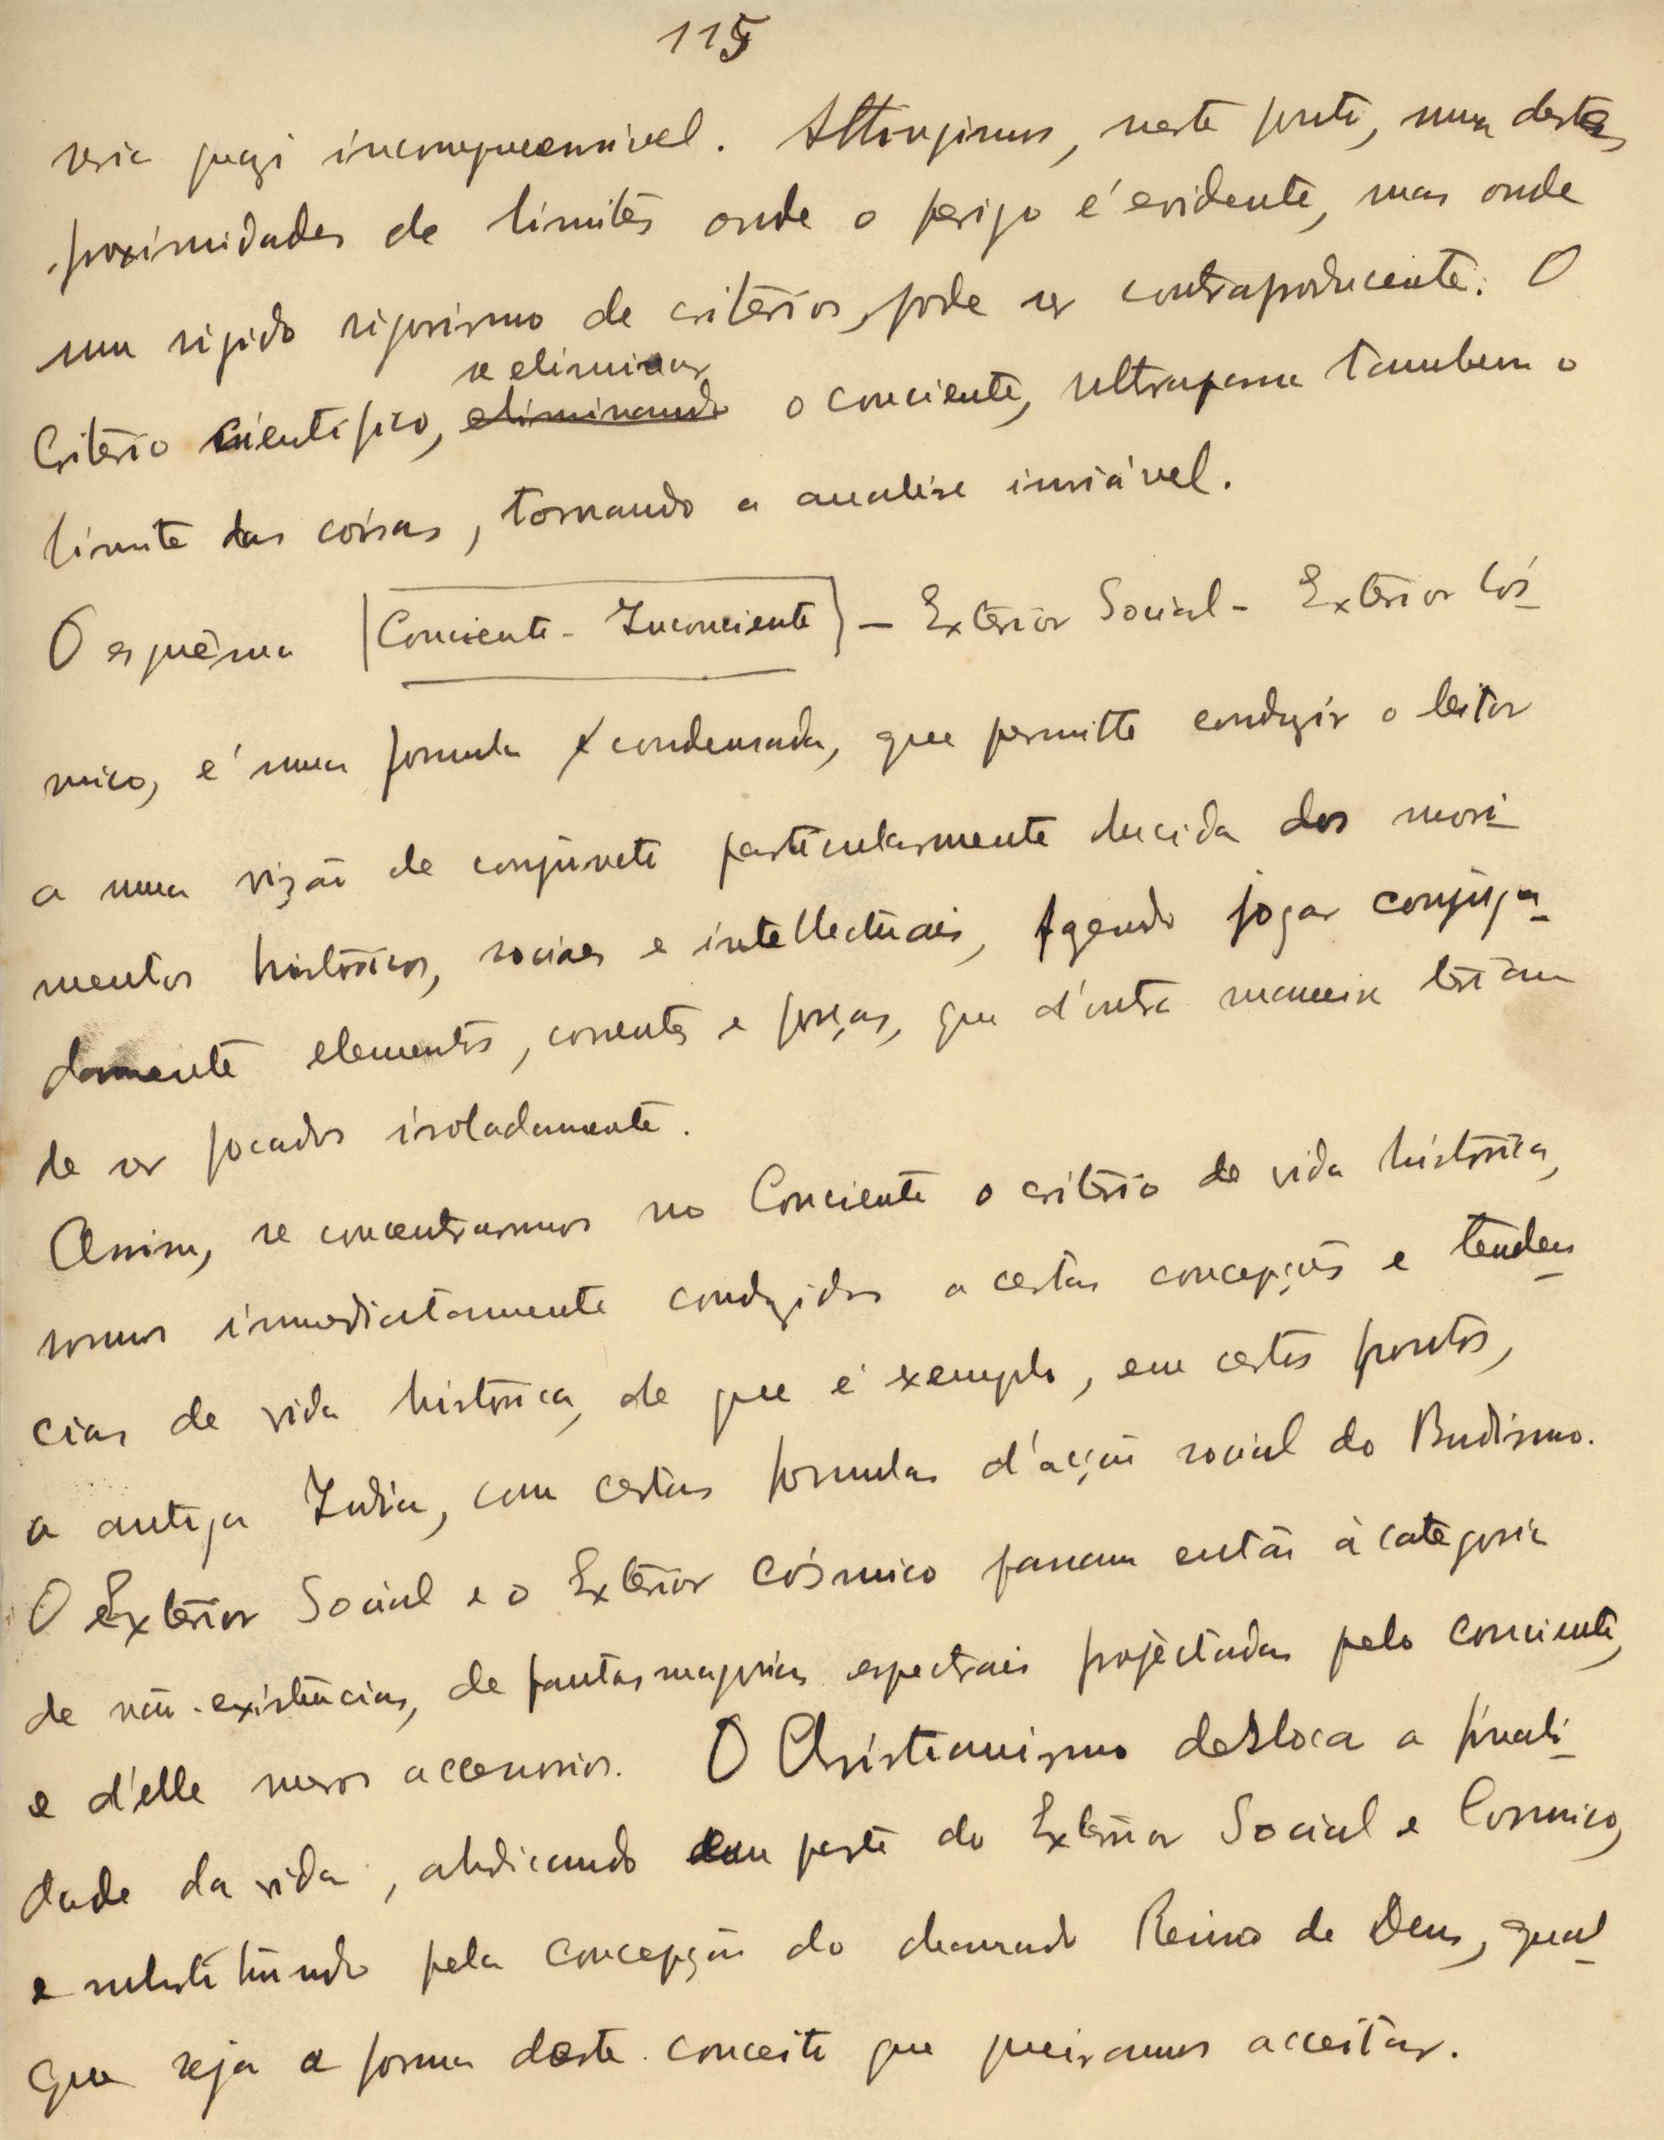 115
seria quazi incompreensivel. Attingimos, neste ponto, uma destas
proximidades de limites onde o perigo é evidente, mas onde
um rigido rigorismo de criterios, pode ser contraproducente. O
se eliminar
Criterio cientifico, eliminando o conciente, ultrapassa tambem o
limite das coisas, tornando a analise inviável.
O esquêma |Conciente - Inconciente| - Exterior Social - Exterior Cós-
mico, é uma formula condensada, que permitte conduzir o leitor
a uma vizão de conjuncto particularmente lucida dos movi-
mentos historicos, sociaes e intellectuais, fazendo jogar conjuga-
damente elementos, correntes e forças, que d'outra maneira teriam
de ser focados isoladamente.
Assim, se concentrarmos no Conciente o critério de vida histórica,
somos immediatamente conduzidos a certas concepções e tenden-
cias de vida historica, de que é exemplo, em certos pontos,
a antiga India, com certas formulas d'acção social do Budismo.
O Exterior Social e o Exterior Cósmico passam então à categoria
de não-existências, de fantasmagorias espectrais projectadas pelo conciente,
e d'elle meros accessorios. O Christianismo desloca a finali-
dade da vida, abdicando em parte do Exterior Social e Cosmico,
e substituindo pela concepção do chamado Reino de Deus, qual-
quer seja a forma deste conceito que queiramos acceitar.